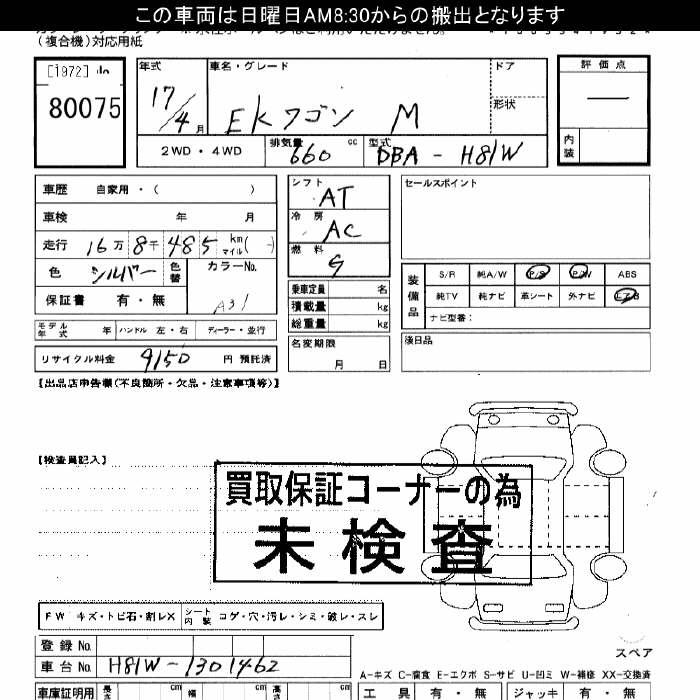 この車両は日曜日AM8:30からの搬出となります
(複合機)対応用紙
[1972]
80075
年式
17/4月
車名・グレード
EKワゴン M
ドア
形状
評価点
—
内装
2WD・4WD
排気量 660 cc
型式 DBA-H81W
車歴 自家用・( )
車検 年 月
走行 16万8千485 km マイル( )
色 シルバー
色替
カラーNo. A31
保証書 有・無
モデル年式 年
ハンドル 左・右
ディーラー・並行
リサイクル料金 9150 円 預託済
シフト AT
冷房 AC
燃料 G
乗車定員 名
積載量 kg
総重量 kg
名変期限
月 日
セールスポイント
装備品
S/R 純A/W P/S P/W ABS
純TV 純ナビ 革シート 外ナビ エアB
ナビ型番:
後日品
【出品店申告欄(不良箇所・欠品・注意事項等)】
【検査員記入】
買取保証コーナーの為
未検査
FW キズ・トビ石・割レX
シート内装 コゲ・穴・汚レ・シミ・破レ・スレ
登録No.
車台No. H81W-1301462
スペア
A-キズ C-腐食 E-エクボ S-サビ U-凹ミ W-補修 XX-交換済
車庫証明用 長さ cm 幅 cm 高さ cm
工具 有・無 ジャッキ 有・無